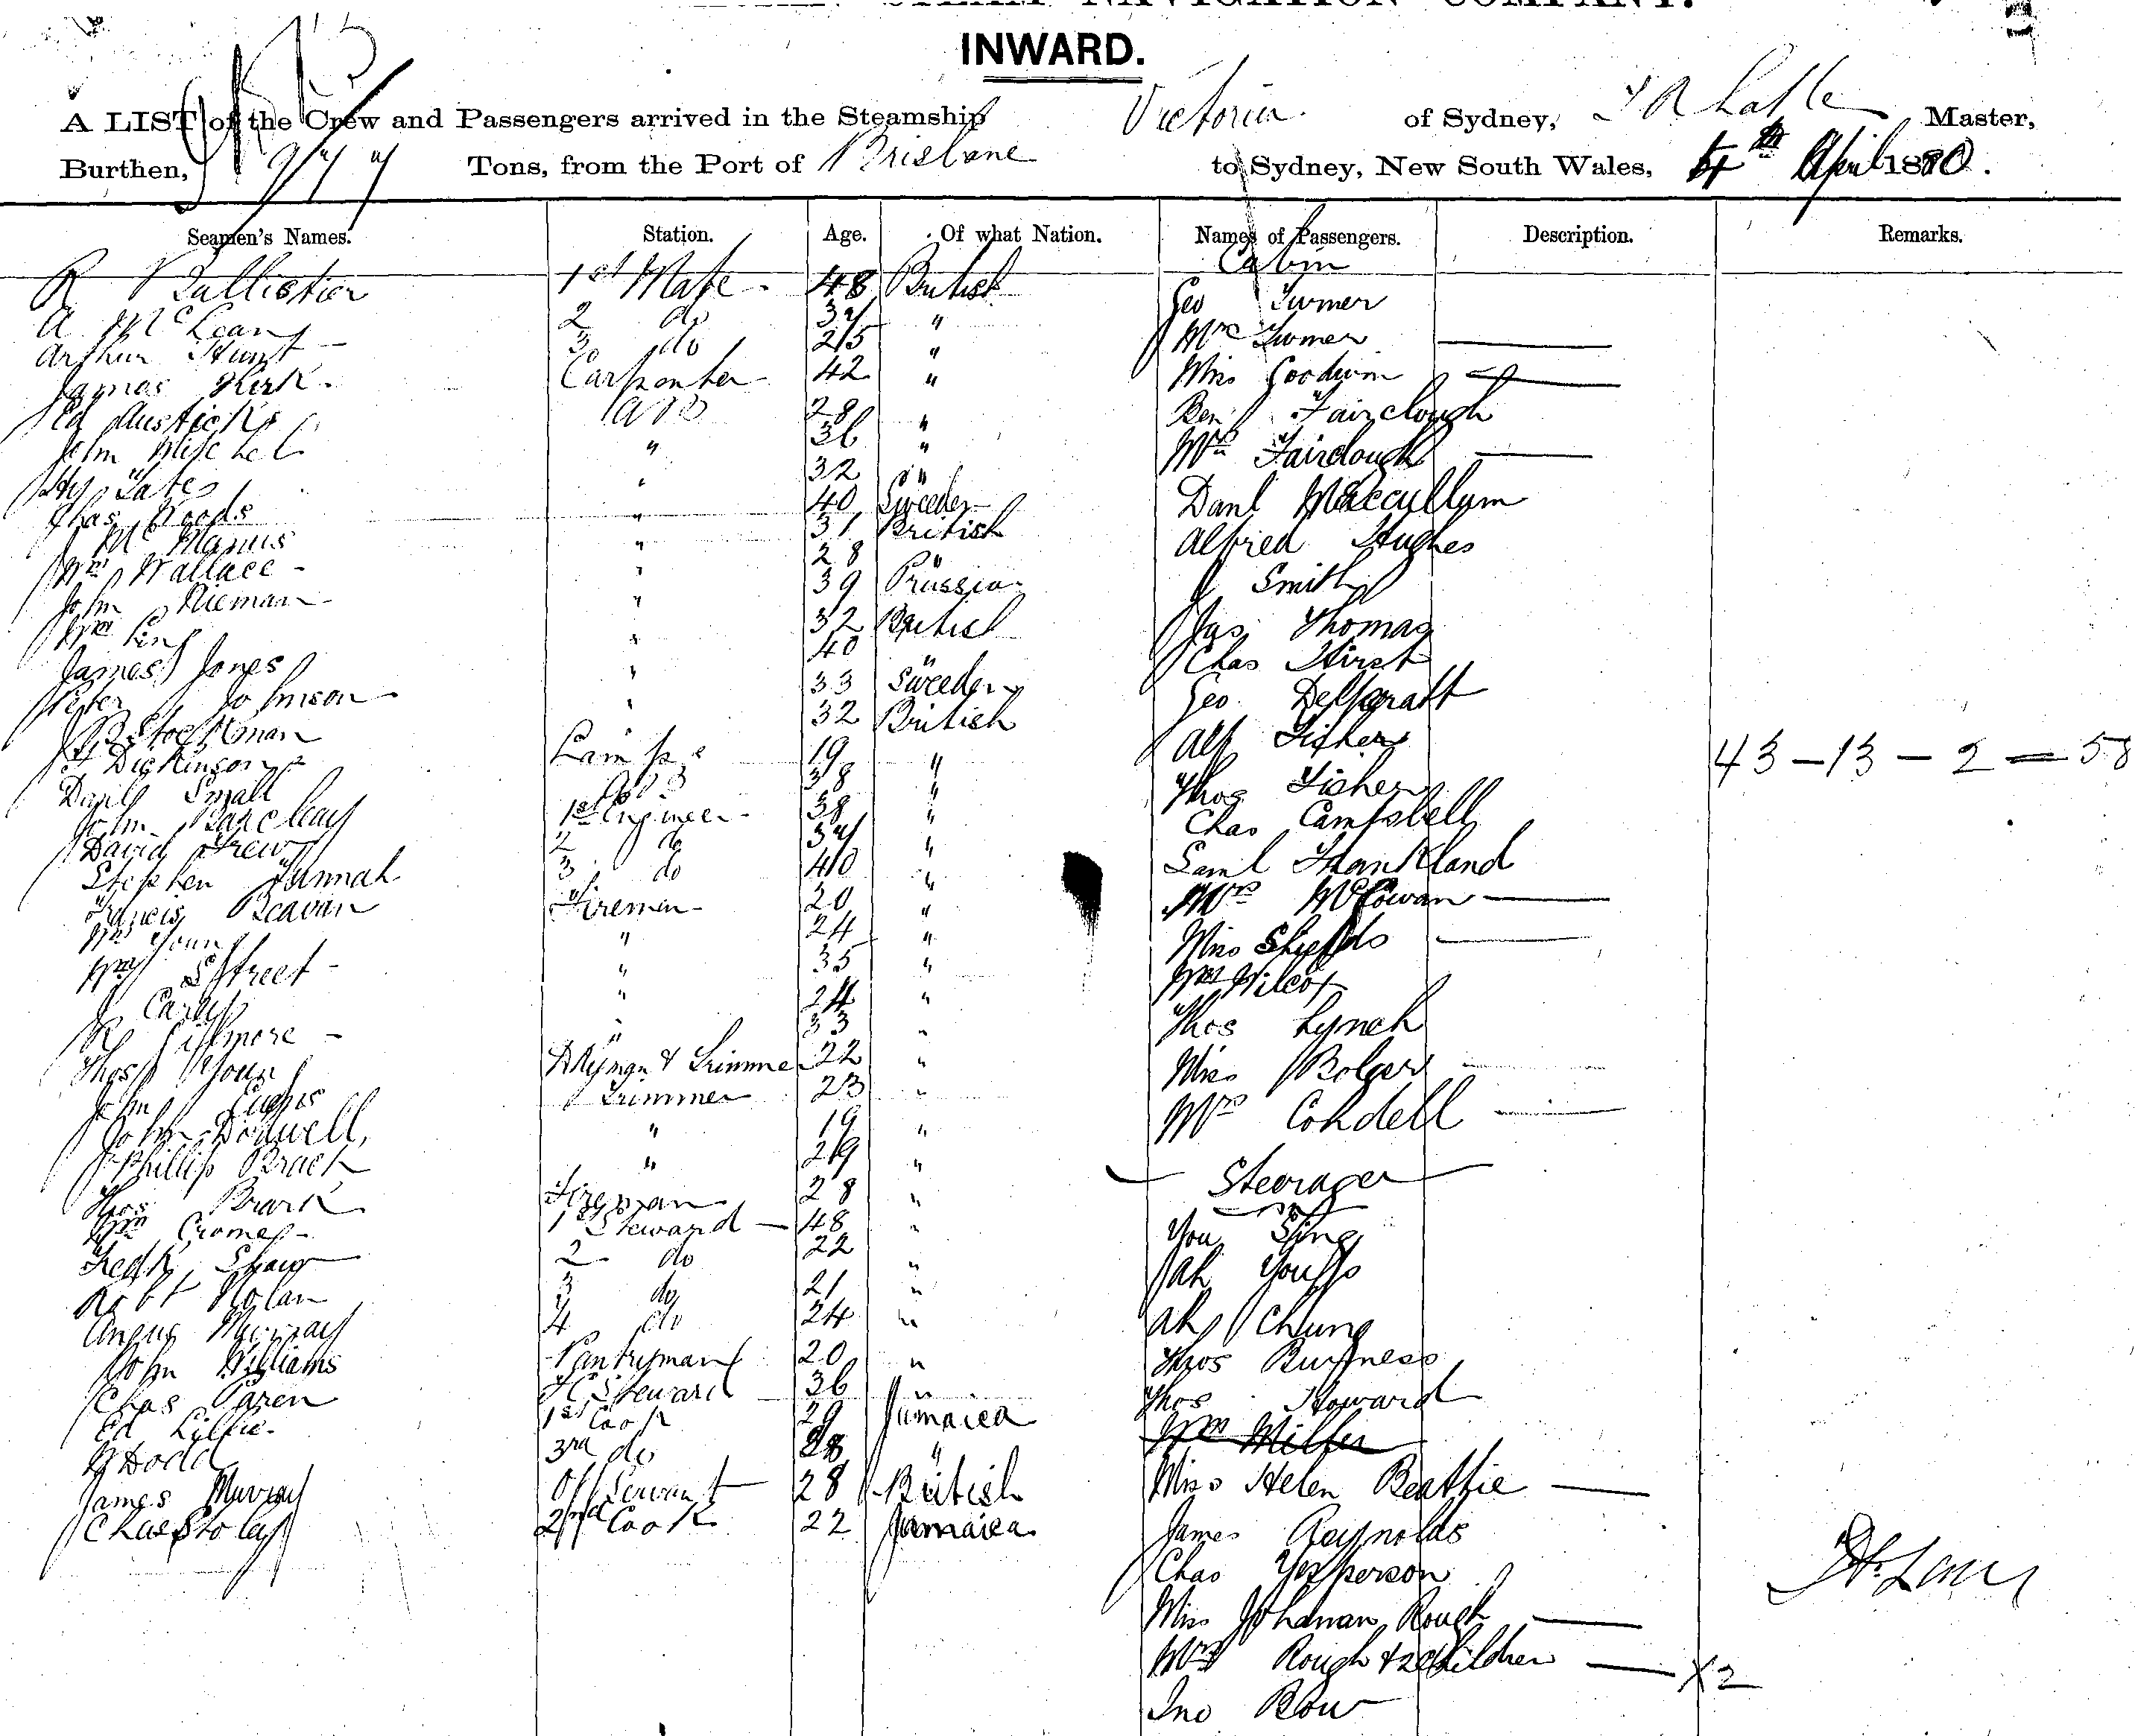 STEAM NAVIGATION COMPANY.
INWARD.
A LIST of the Crew and Passengers arrived in the Steamship Victoria of Sydney, Master,
Burthen, Tons, from the Port of Brisbane to Sydney, New South Wales, April 1880.
Seamen's Names. Station. Age. Of what Nation. Names of Passengers. Description. Remarks.
Cabin
R 1st Mate 48 British
Geo Turner
A McLean 2 do 34 "
Mrs Turner
Arthur Hunt 3 do 25 "
James Kirk Carpenter 42 "
Miss Goodwin
Ed Austicks AB 28 "
Ben Fairclough
John Mitchel " 36 "
Mrs Fairclough
Hy Yates " 32 "
Chas Woods " 40 Sweden
Danl Maccullum
McManus " 31 British
Alfred Hughes
Wm Wallace " 28 "
J Smith
John Nieman " 39 Prussia
Wm King " 32 British
Jas Thomas
James Jones " 40 "
Chas Hirst
Peter Johnson " 33 Sweden
Geo
Stockman " 32 British
Alf Fisher
Dickinson Lamps 19 "
Thos Fisher
43 - 13 - 2 = 58
Danl Small AB 38 "
John Barclay 1st Engineer 38 "
Chas Campbell
David Frew 2 do 34 "
Stephen Hannah 3 do 40 "
Saml Frankland
Francis Beavan Firemen 20 "
Mrs McCowan
Wm Young " 24 "
Miss Shields
Wm Street " 35 "
Wm Wilcox
J " 24 "
Thos Lynch
R " 33 "
Thos Young & Trimmer 22 "
Miss Bolger
John Trimmer 23 "
Mrs Cordell
John Bodwell " 19 "
Phillip " 29 "
Steerage
Thos Fireman 28 "
Wm 1st Steward 48 "
You Sing
Fredk Shaw 2 do 22 "
Ah
Robt Nolan 3 do 21 "
Angus Murray 4 do 24 "
Ah Chung
John Williams Pantryman 20 "
Thos Burness
Chas Steward 36 "
Thos Howard
Ed Lillie 1st Cook 29 Jamaica
Wm Miller
Dodd 3rd do 28 "
James Murray Servant 28 British
Miss Helen Beattie
Chas 2nd Cook 22 Jamaica
James Reynolds
Chas Yesperson
Miss Rough
Mrs Rough & 2 children X2
Jno Row